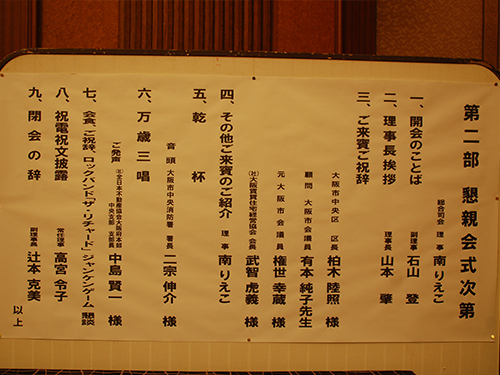 第二部 懇親会式次第
総合司会 理事 南 りえこ
一、開会のことば 副理事 石山 登
二、理事長挨拶 理事長 山本 肇
三、ご来賓ご祝辞
大阪市中央区 区長 柏木 陸照 様
顧問 大阪市会議員 有本 純子 先生
元 大阪市会議員 権世 幸蔵 様
㈳大阪賃貸住宅経営協会 会長 武智 虎義 様
四、その他ご来賓のご紹介 理事 南 りえこ
五、乾杯
音頭 大阪市中央消防署 署長 二宗 伸介 様
六、万歳三唱
ご発声 ㈳全日本不動産協会大阪府本部 中央支部 支部長 中島 賢一 様
七、会食、ご祝辞、ロックバンド「ザ・リチャード」ジャンケンゲーム 懇談
八、祝電祝文披露 常任理事 高宮 令子
九、閉会の辞 副理事長 辻本 克美
以上